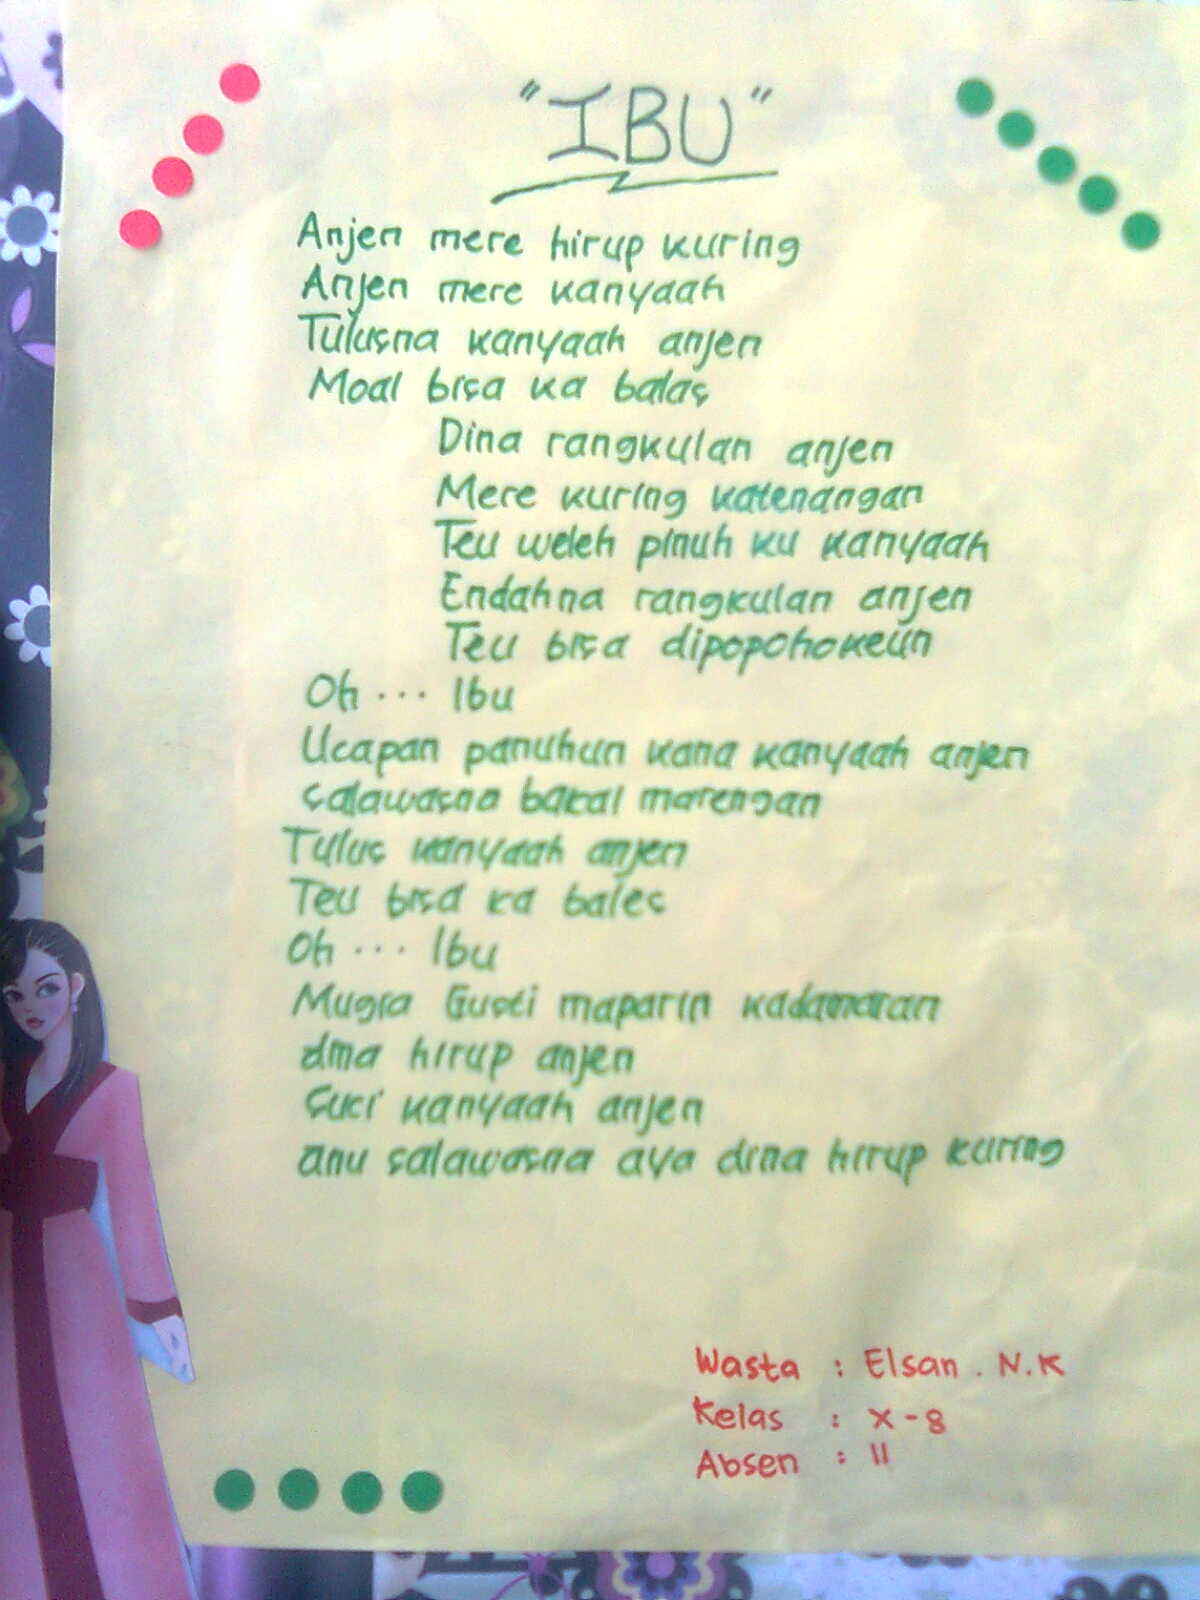 "IBU"
Anjen mere hirup kuring
Anjen mere kanyaah
Tulusna kanyaah anjen
Moal bisa ka balas
Dina rangkulan anjen
Mere kuring katenangan
Teu weleh pinuh ku kanyaah
Endahna rangkulan anjen
Teu bisa dipopohokeun
Oh ... Ibu
Ucapan panuhun kana kanyaah anjen
salawasna bakal marengan
Tulus kanyaah anjen
Teu bisa ka bales
Oh ... Ibu
Mugia Gusti maparin kadamaran
dina hirup anjen
suci kanyaah anjen
anu salawasna aya dina hirup kuring
Wasta : Elsan . N.K
Kelas : X-8
Absen : 11